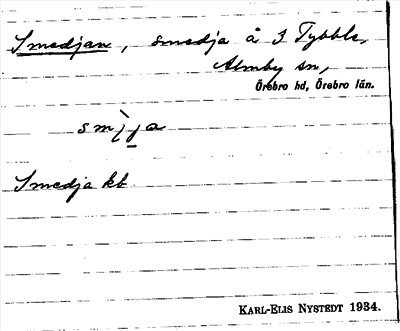 Smedjan, smedja å 3 Tybble,
Almby sn,
Örebro hd, Örebro län.
Smedja kb
KARL-ELIS NYSTEDT 1934.